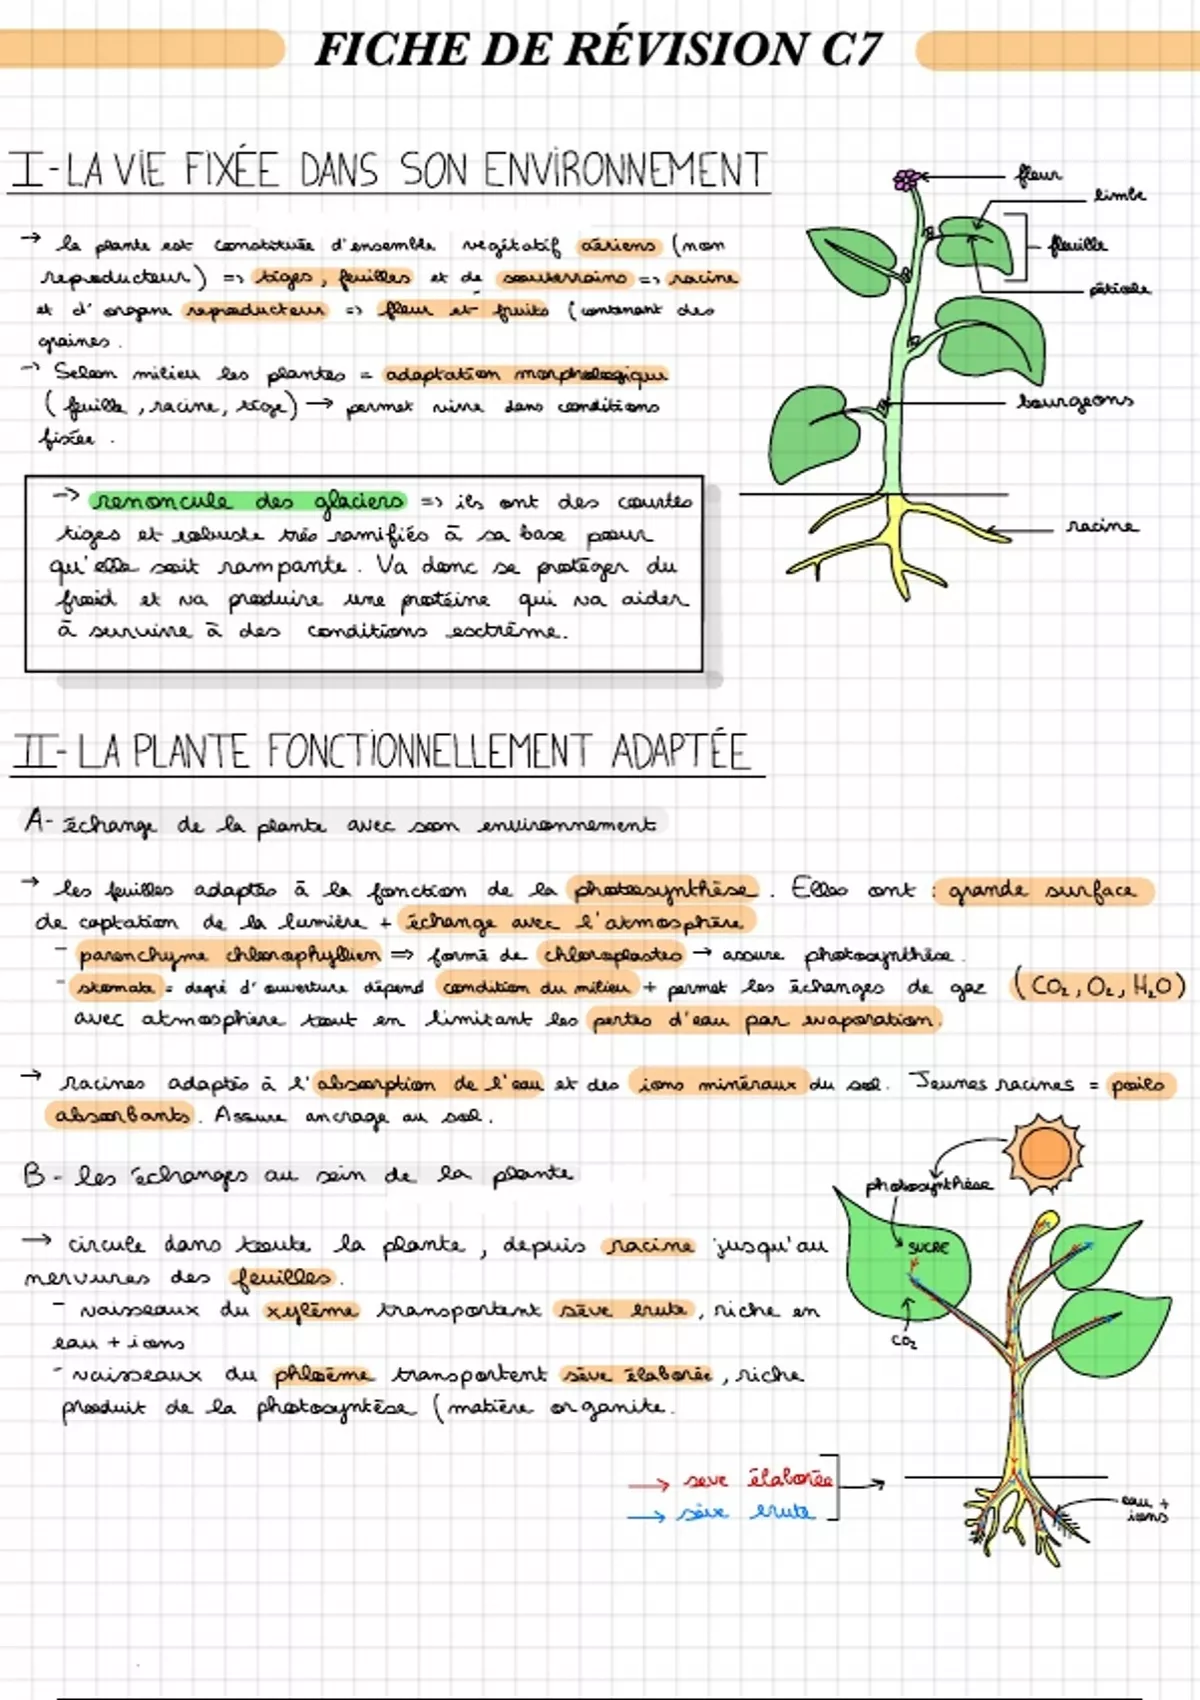 FICHE DE RÉVISION C7
I- LA VIE FIXÉE DANS SON ENVIRONNEMENT
→ la plante est constituée d'ensemble végétatif aériens (non
reproducteur) => tiges, feuilles et de souterrains => racine
et d'organe reproducteur => fleur et fruits (contenant des
graines.
→ Selon milieu les plantes = adaptation morphologique
(feuille, racine, tige) → permet vivre dans conditions
fixée.
fleur
limbe
feuille
pétiole
bourgeons
racine
→ renoncule des glaciers => ils ont des courtes
tiges et robuste très ramifiés à sa base pour
qu'elle soit rampante. Va donc se protéger du
froid et va produire une protéine qui va aider
à survivre à des conditions esctrême.
II- LA PLANTE FONCTIONNELLEMENT ADAPTÉE
A- échange de la plante avec son environnement
→ les feuilles adaptés à la fonction de la photosynthèse. Elles ont : grande surface
de captation de la lumière + échange avec l'atmosphère
- parenchyme chlorophyllien => formé de chloroplastes → assure photosynthèse.
- stomate = degré d'ouverture dépend condition du milieu + permet les échanges de gaz (CO₂, O₂, H₂O)
avec atmosphère tout en limitant les pertes d'eau par evaporation.
→ racines adaptés à l'absorption de l'eau et des ions minéraux du sol. Jeunes racines = poils
absorbants. Assure ancrage au sol.
B- les échanges au sein de la plante
→ circule dans toute la plante, depuis racine jusqu'au
nervures des feuilles.
- vaisseaux du xylème transportent sève brute, riche en
eau + ions
- vaisseaux du phloème transportent sève élaborée, riche
produit de la photosyntèse (matière organite.
photosynthèse
SUCRE
CO₂
→ seve élaborée
→ sève brute
eau +
ions